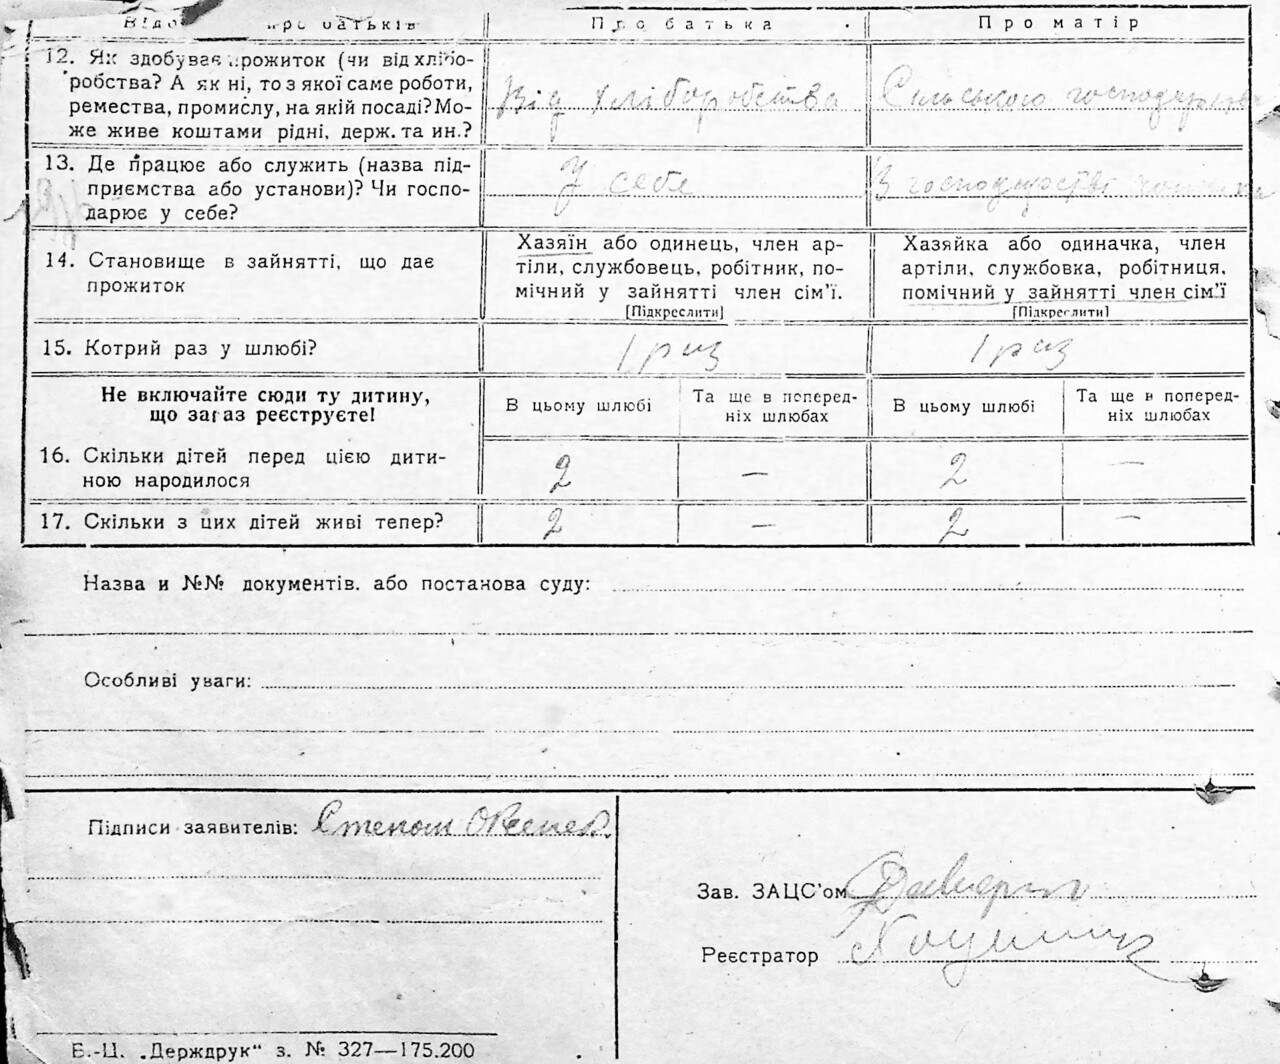 Відо про батьків Про батька Про матір
12. Як здобуває прожиток (чи від хлібо-
робства? А як ні, то з якої саме роботи,
ремества, промислу, на якій посаді? Мо-
же живе коштами рідні, держ. та ин.?
Від хліборобства
Сільського господарства
13. Де працює або служить (назва під-
приємства або установи)? Чи госпо-
дарює у себе?
У себе
З господарстві
14. Становище в зайнятті, що дає
прожиток
Хазяїн або одинець, член ар-
тіли, службовець, робітник, по-
мічний у зайнятті член сім'ї.
[Підкреслити]
Хазяйка або одиначка, член
артіли, службовка, робітниця,
помічний у зайнятті член сім'ї
[Підкреслити]
15. Котрий раз у шлюбі? 1 раз 1 раз
Не включайте сюди ту дитину,
що зараз реєструєте!
В цьому шлюбі
Та ще в поперед-
ніх шлюбах
В цьому шлюбі
Та ще в поперед-
ніх шлюбах
16. Скільки дітей перед цією дити-
ною народилося
2 — 2 —
17. Скільки з цих дітей живі тепер? 2 — 2 —
Назва и №№ документів. або постанова суду:
Особливі уваги:
Підписи заявителів: Степан
Зав. ЗАЦС'ом
Реєстратор
Е.-Ц. „Держдрук“ з. № 327—175.200